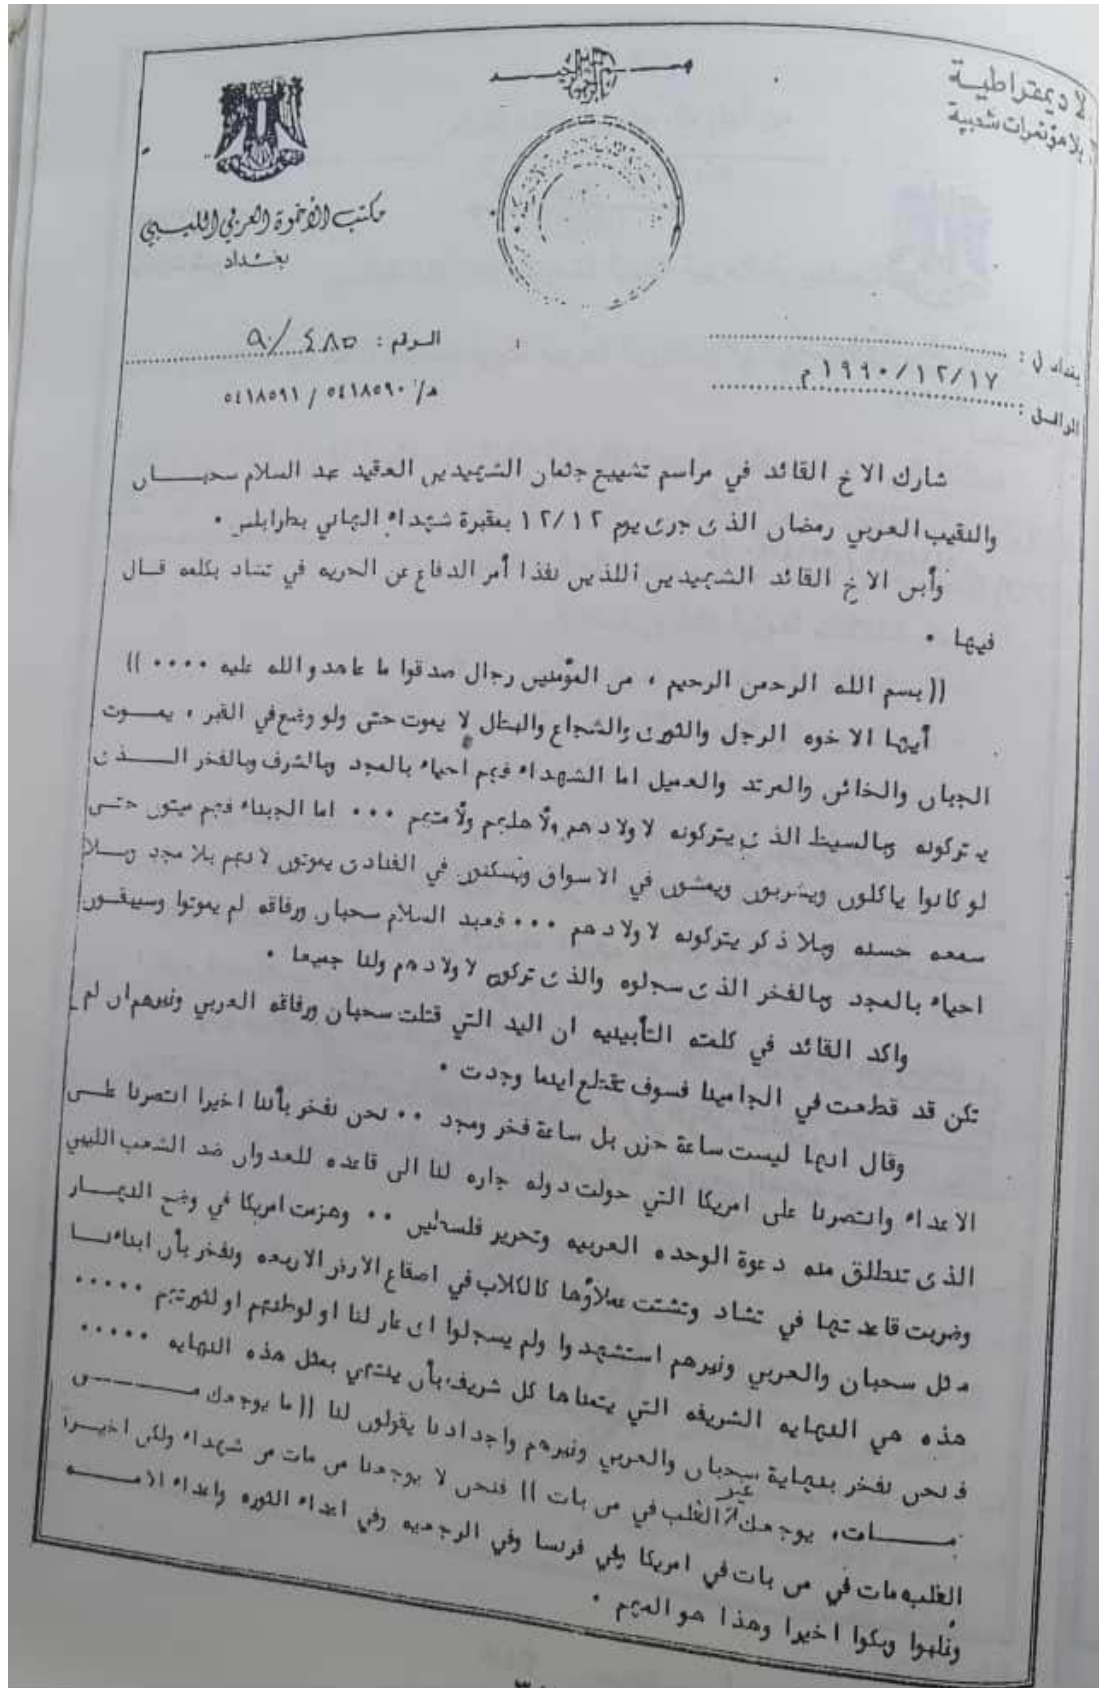 لا ديمقراطية
بلا مؤتمرات شعبية
بسم الله الرحمن الرحيم
مكتب الأخوة العربي الليبي
بغداد
بغداد في :
الموافق : ١٩٩٠/١٢/١٧ م
الرقم : ٤٨٥/٩٠
هـ/ ٥٤١٨٥٩٠ / ٥٤١٨٥٩١
شارك الاخ القائد في مراسم تشييع جثمان الشهيدين العقيد عبد السلام سحبـــان
والنقيب العربي رمضان الذى جرى يوم ١٢/١٢ بمقبرة شهداء الهاني بطرابلس ٠
وأبن الاخ القائد الشهيدين اللذين نفذا أمر الدفاع عن الحريه في تشاد بكلمه قـال
فيها ٠
(( بسم الله الرحمن الرحيم ، من المؤمنين رجال صدقوا ما عاهدو الله عليه ٠٠٠٠ ))
أيها الاخوه الرجل والثورى والشجاع والبطل لا يموت حتى ولو وضع في القبر ، يمـوت
الجبان والخائن والمرتد والعميل اما الشهداء فهم احياء بالمجد وبالشرف وبالفخر الــذى
يتركونه وبالسيط الذى يتركونه لاولادهم ولأهليهم ولأمتهم ٠٠٠ اما الجبناء فهم ميتون حتـى
لو كانوا ياكلون ويشربون ويمشون في الاسواق ويسكنون في الفنادق يموتون لانهم بلا مجد وبــلا
سمعه حسنه وبلا ذكر يتركونه لاولادهم ٠٠٠ فعبد السلام سحبان ورفاقه لم يموتوا وسيبقـون
احياء بالمجد وبالفخر الذى سجلوه والذى تركون لاولادهم ولنا جميعا ٠
واكد القائد في كلمته التأبينيه ان اليد التي قتلت سحبان ورفاقه العربي وغيرهم ان لم
تكن قد قطعت في انجامينا فسوف تقتلع اينما وجدت ٠
وقال انها ليست ساعة حزن بل ساعة فخر ومجد ٠٠ نحن نفخر بأننا اخيرا انتصرنا علـى
الاعداء وانتصرنا على امريكا التي حولت دوله جاره لنا الى قاعده للعدوان ضد الشعب الليبي
الذى تنطلق منه دعوة الوحده العربيه وتحرير فلسطين ٠٠ وهزمت امريكا في وضح النهـار
وضربت قاعدتها في تشاد وتشتت عملاؤها كالكلاب في اصقاع الارض الاربعه ونفخر بأن ابناءنـا
مثل سحبان والعربي وغيرهم استشهدوا ولم يسجلوا اى عار لنا او لوطنهم او لثورتهم ٠٠٠٠٠
هذه هي النهايه الشريفه التي يتمناها كل شريف بأن ينتهي بمثل هذه النهايه ٠٠٠٠٠
فنحن نفخر بنهاية سحبان والعربي وغيرهم واجدادنا يقولون لنا (( ما يوجعك مــــن
مــات، يوجعك غير الغلب في من بات )) فنحن لا يوجعنا من مات من شهداء ولكن اخيـرا
الغلب مات في من بات في امريكا وفي فرنسا وفي الرجعيه وفي اعداء الثوره واعداء الامــه
وغلبوا وبكوا اخيرا وهذا هو المهم ٠